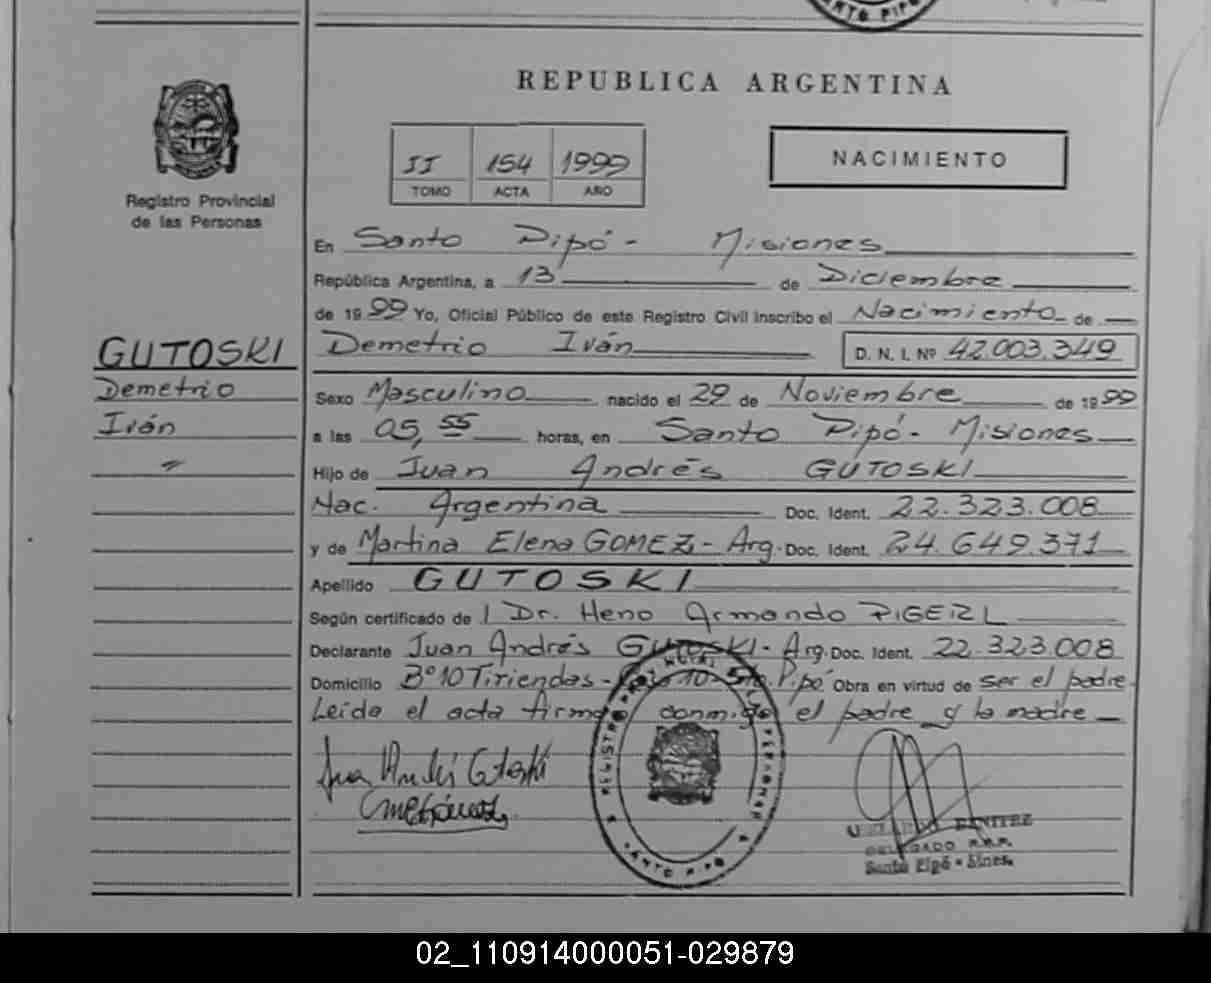 SANTO PIPÓ
REPUBLICA ARGENTINA
II 154 1999
TOMO ACTA AÑO
NACIMIENTO
Registro Provincial
de las Personas
En Santo Pipó - Misiones
República Argentina, a 13 de Diciembre
de 1999 Yo, Oficial Público de este Registro Civil inscribo el Nacimiento de
GUTOSKI
Demetrio
Iván
Demetrio Iván D. N. I. Nº 42.003.349
Sexo Masculino nacido el 29 de Noviembre de 1999
a las 05,55 horas, en Santo Pipó - Misiones
Hijo de Juan Andrés GUTOSKI
Nac. Argentina Doc. Ident. 22.323.008
y de Martina Elena GOMEZ - Arg. Doc. Ident. 24.649.371
Apellido GUTOSKI
Según certificado de Dr. Heno Armando
Declarante Juan Andrés GUTOSKI - Arg. Doc. Ident. 22.323.008
Domicilio Bº 10 Tiriendas - 10 - Sto. Pipó Obra en virtud de ser el padre.
Leída el acta firma conmigo el padre y la madre
Juan Andrés Gutoski
REGISTRO PROVINCIAL DE LAS PERSONAS
SANTO PIPO
BENITEZ
DELEGADO R.P.P.
Santo Pipó - Mnes.
02_110914000051-029879